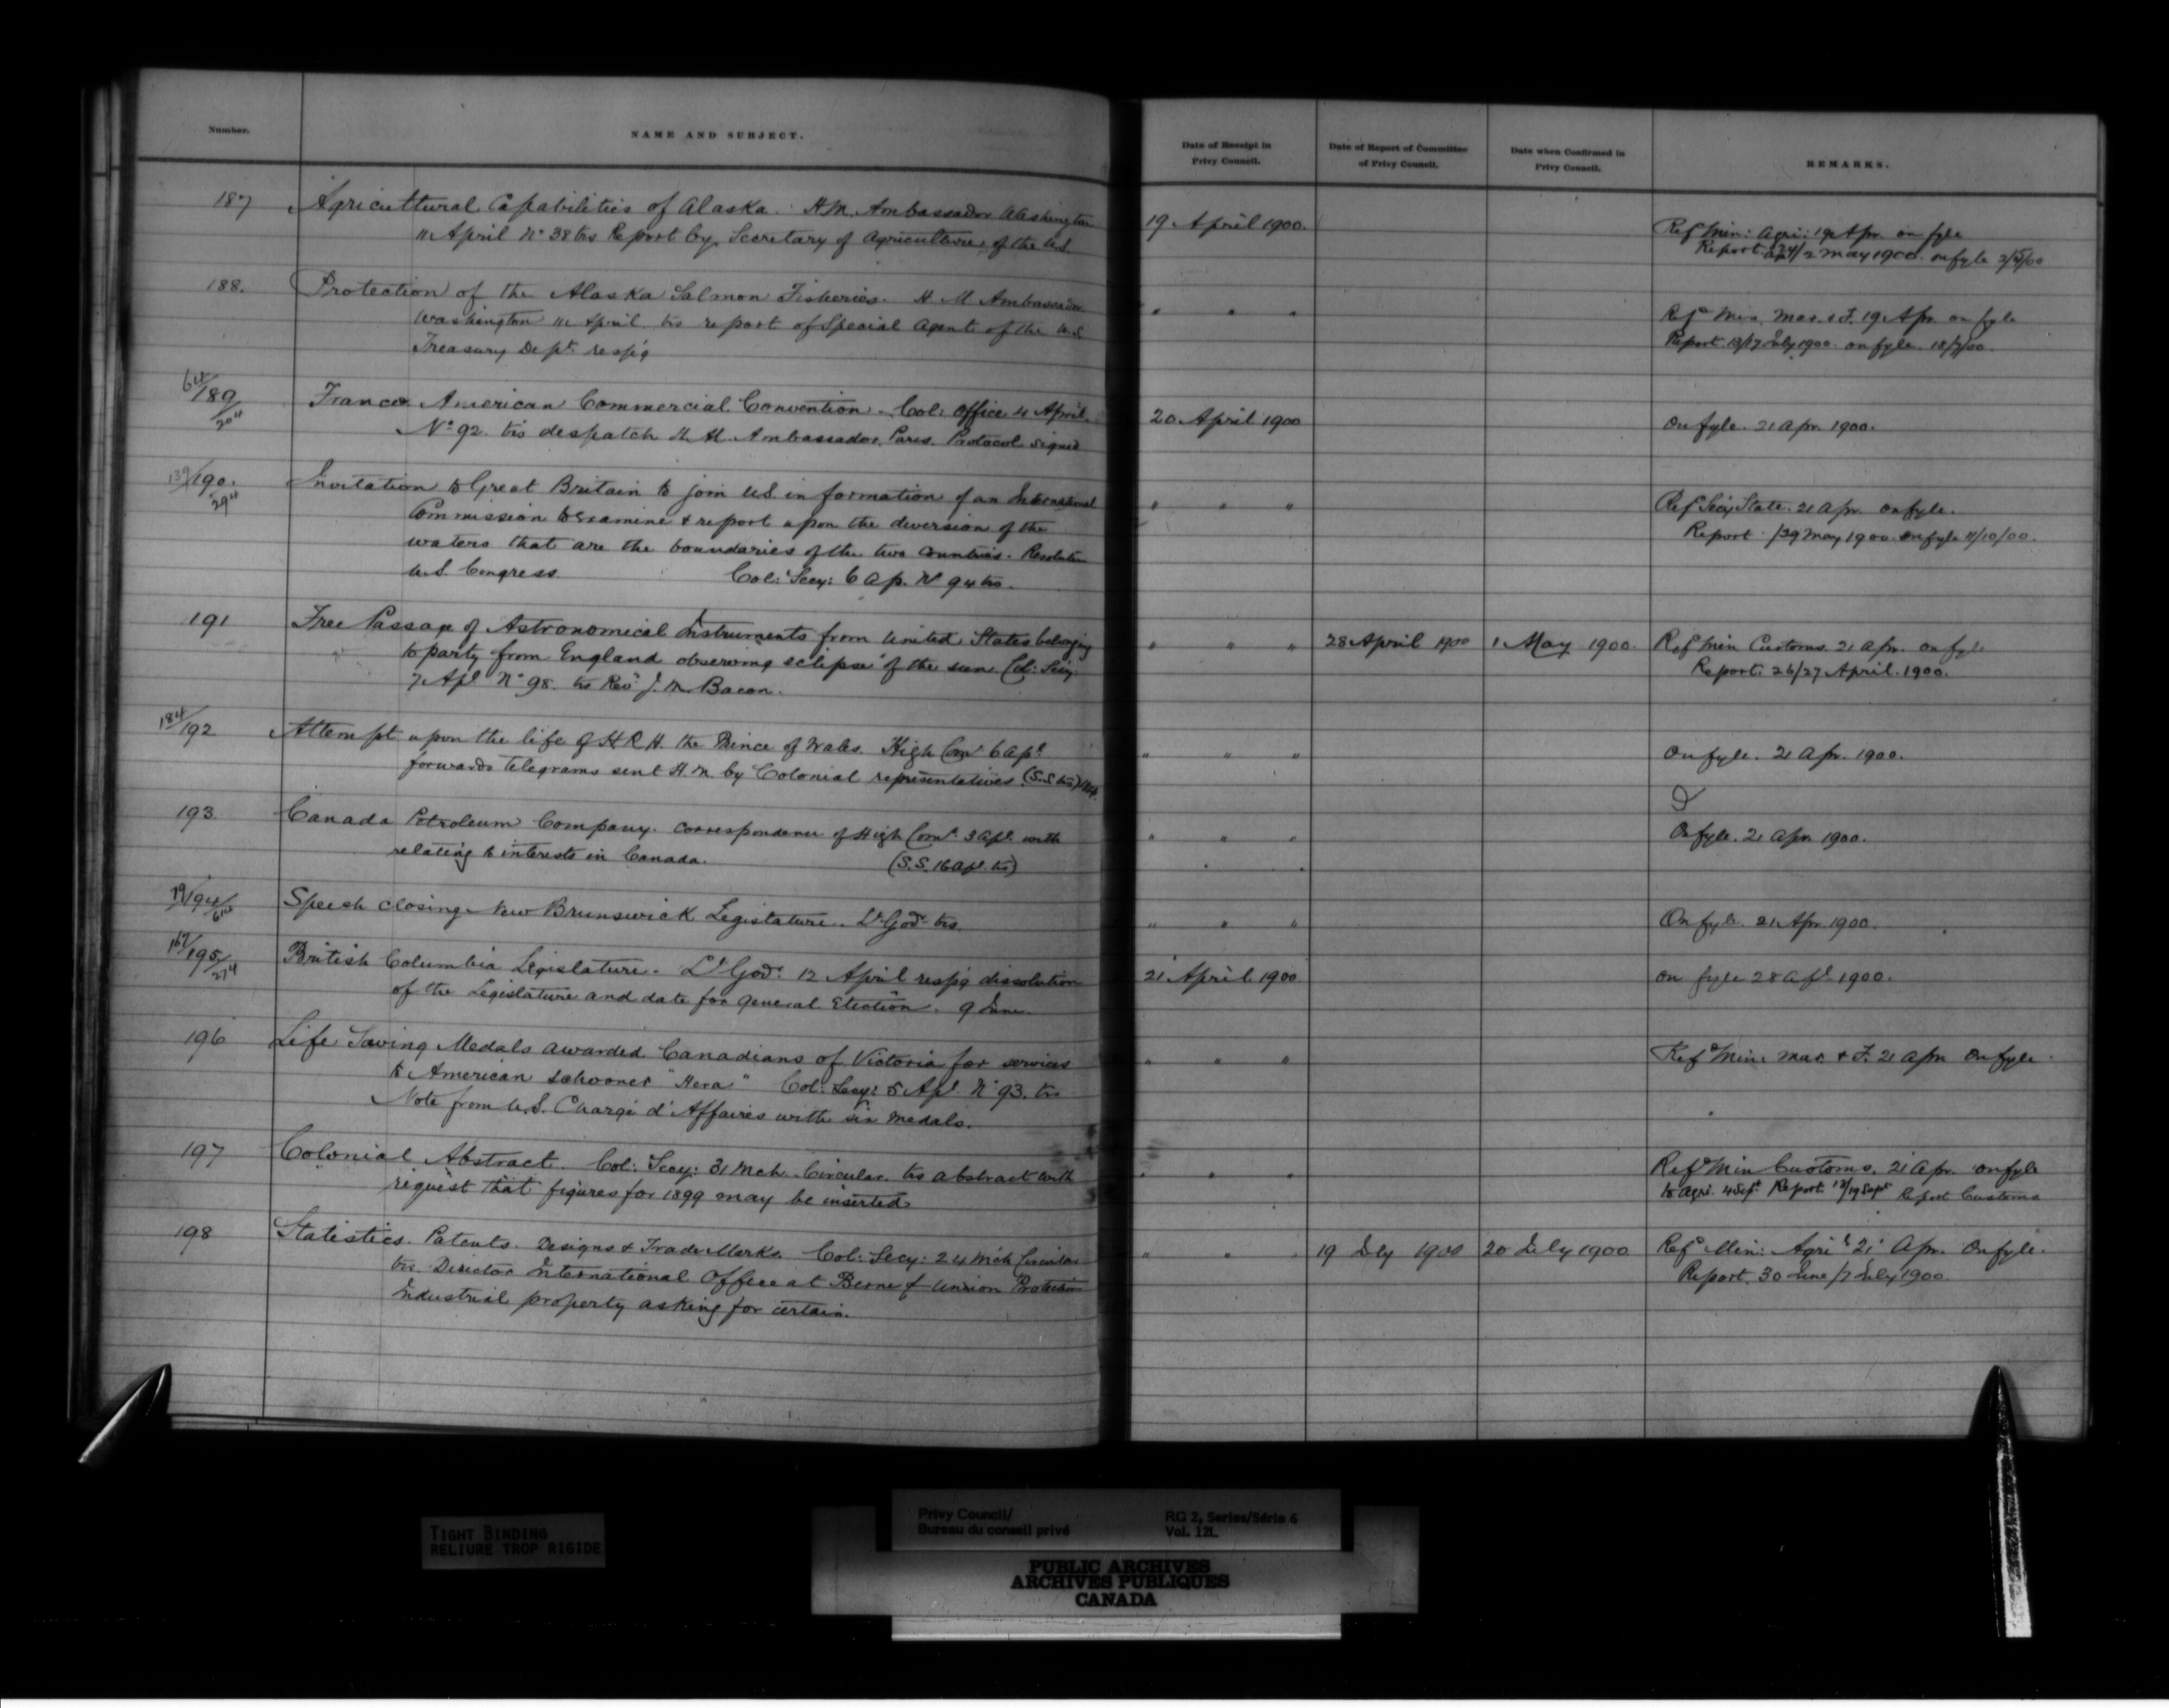 Number.
NAME AND SUBJECT.
Date of Receipt in
Privy Council.
Date of Report of Committee
of Privy Council.
Date when Confirmed in
Privy Council.
REMARKS.
187 Agricultural Capabilities of Alaska. H.M. Ambassador Washington
11 April No 38 trs Report by Secretary of Agriculture of the U.S.
19 April 1900.
Refd Min: Agri: 19 Apr. on fyle
Report 2 May 1900. on fyle
188. Protection of the Alaska Salmon Fisheries. H M Ambassador
Washington 11 April trs report of Special Agent of the U.S.
Treasury Dept. respg
" " "
Refd Min. Mar. & F. 19 Apr. on fyle
Report 13/17 July 1900. on fyle. 18/7/00.
64/189/204
Franco American Commercial Convention. Col: Office 4 April
No 92. trs despatch H. M. Ambassador Paris. Protocol signed
20 April 1900
On fyle. 21 Apr. 1900.
139/190./294
Invitation to Great Britain to join U.S. in formation of an International
Commission to examine & report upon the diversion of the
waters that are the boundaries of the two countries. Resolution
U.S. Congress. Col: Secy: 6 Ap. No 94 trs.
" " "
Refd Secy State. 21 Apr. on fyle.
Report /29 May 1900. on fyle 11/10/00.
191 Free Passage of Astronomical Instruments from United States belonging
to party from England observing eclipse of the sun. Col: Secy.
7 Apl No 98. trs Revd J. M. Bacon.
" " "
28 April 1900
1 May 1900.
Refd Min Customs. 21 Apr. on fyle
Report. 26/27 April. 1900.
184/192
Attempt upon the life of H.R.H. the Prince of Wales. High Comr 6 Apl
forwards telegrams sent H.M by Colonial representatives. (S.S. trs)
" " "
On fyle. 21 Apr. 1900.
193. Canada Petroleum Company. Correspondence of High Comr. 3 Apl. with
relating to interests in Canada. (S.S. 16 Apl. trs)
" " "
On fyle. 21 Apr. 1900.
Speech closing New Brunswick Legislature. Lt Govr trs.
" " "
On fyle. 21 Apr. 1900.
British Columbia Legislature. Lt Govr. 12 April respg dissolution
of the Legislature and date for General Election. 9 June.
21 April 1900
on fyle 28 Apl. 1900.
196 Life Saving Medals awarded Canadians of Victoria for services
to American schooner "Hera" Col: Secy: 5 Apl. No 93. trs
Note from U.S. Chargé d'Affaires with six medals.
" " "
Refd Min: Mar. & F. 21 Apr. on fyle.
197 Colonial Abstract. Col: Secy: 31 Mch. Circular trs abstract with
request that figures for 1899 may be inserted
" " "
Refd Min Customs. 21 Apr. on fyle
to Agri. 4 Sept Report 18/19 Sept Report Customs
198 Statistics. Patents. Designs & Trade Marks. Col: Secy: 24 Mch Circular
trs. Director International Office at Berne of Union Protection
Industrial property asking for certain.
" "
19 July 1900
20 July 1900
Refd Min: Agri: 21 Apr. on fyle.
Report. 30 June/7 July 1900.
TIGHT BINDING
RELIURE TROP RIGIDE
Privy Council/
Bureau du conseil privé
RG 2, Series/Série 6
Vol. 121.
PUBLIC ARCHIVES
ARCHIVES PUBLIQUES
CANADA